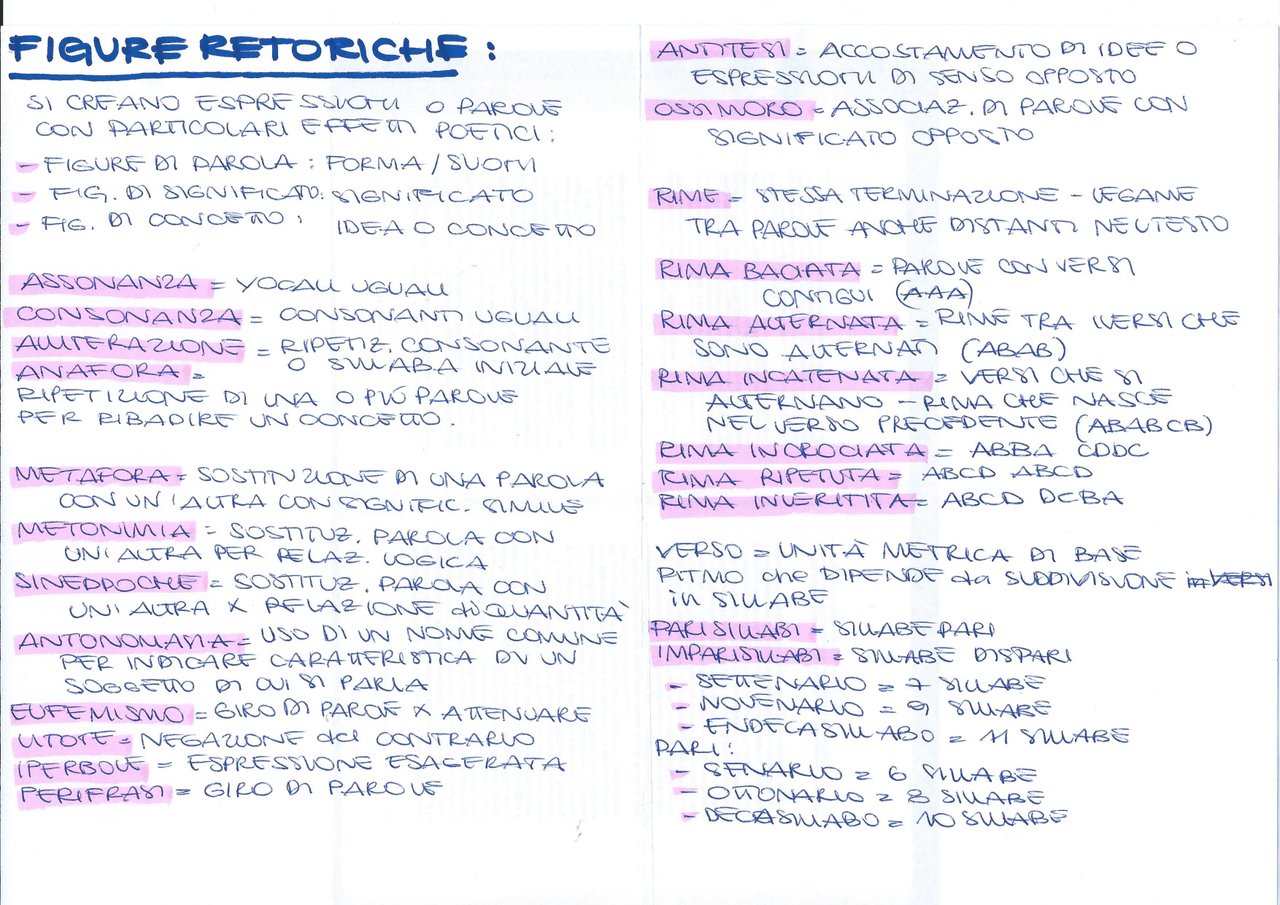 FIGURE RETORICHE :
SI CREANO ESPRESSIONI O PAROLE
CON PARTICOLARI EFFETTI POETICI :
- FIGURE DI PAROLA : FORMA / SUONI
- FIG. DI SIGNIFICATO: SIGNIFICATO
- FIG. DI CONCETTO : IDEA O CONCETTO
ASSONANZA = VOCALI UGUALI
CONSONANZA = CONSONANTI UGUALI
ALLITERAZIONE = RIPETIZ. CONSONANTE
O SILLABA INIZIALE
ANAFORA =
RIPETIZIONE DI UNA O PIÚ PAROLE
PER RIBADIRE UN CONCETTO.
METAFORA = SOSTITUZIONE DI UNA PAROLA
CON UN'ALTRA CON SIGNIFIC. SIMILE
METONIMIA = SOSTITUZ. PAROLA CON
UN'ALTRA PER RELAZ. LOGICA
SINEDDOCHE = SOSTITUZ. PAROLA CON
UN'ALTRA X RELAZIONE di QUANTITÀ
ANTONOMASIA = USO DI UN NOME COMUNE
PER INDICARE CARATTERISTICA DI UN
SOGGETTO DI CUI SI PARLA
EUFEMISMO = GIRO DI PAROLE X ATTENUARE
LITOTE = NEGAZIONE del CONTRARIO
IPERBOLE = ESPRESSIONE ESAGERATA
PERIFRASI = GIRO DI PAROLE
ANTITESI = ACCOSTAMENTO DI IDEE O
ESPRESSIONI DI SENSO OPPOSTO
OSSIMORO = ASSOCIAZ. DI PAROLE CON
SIGNIFICATO OPPOSTO
RIME = STESSA TERMINAZIONE - LEGAME
TRA PAROLE ANCHE DISTANTI NEL TESTO
RIMA BACIATA = PAROLE CON VERSI
CONTIGUI (AAA)
RIMA ALTERNATA = RIME TRA I VERSI CHE
SONO ALTERNATI (ABAB)
RIMA INCATENATA = VERSI CHE SI
ALTERNANO - RIMA CHE NASCE
NEL VERSO PRECEDENTE (ABABCB)
RIMA INCROCIATA = ABBA CDDC
RIMA RIPETUTA = ABCD ABCD
RIMA INVERTITA = ABCD DCBA
VERSO = UNITÀ METRICA DI BASE
RITMO che DIPENDE da SUDDIVISIONE in VERSI
in SILLABE
PARISILLABI = SILLABE PARI
IMPARISILLABI = SILLABE DISPARI
- SETTENARIO = 7 SILLABE
- NOVENARIO = 9 SILLABE
- ENDECASILLABO = 11 SILLABE
PARI :
- SENARIO = 6 SILLABE
- OTTONARIO = 8 SILLABE
- DECASILLABO = 10 SILLABE